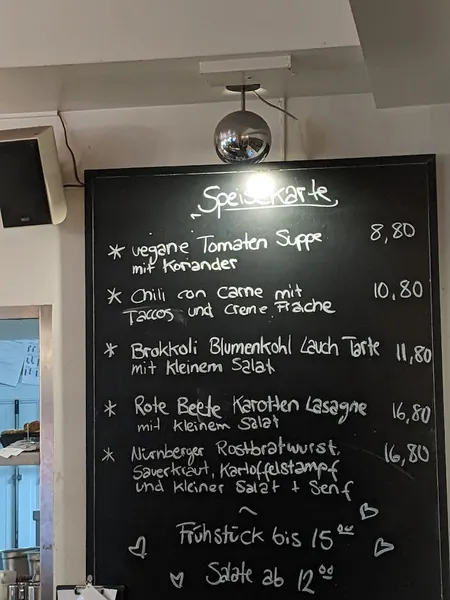 Speisekarte
* vegane Tomaten Suppe 8,80
mit Koriander
* Chili con Carne mit 10,80
Taccos und Creme Fraiche
* Brokkoli Blumenkohl Lauch Tarte 11,80
mit kleinem Salat
* Rote Beete Karotten Lasagne 16,80
mit kleinem Salat
* Nürnberger Rostbratwurst, 16,80
Sauerkraut, Kartoffelstampf
und kleiner Salat + Senf
~
Frühstück bis 15⁰⁰
Salate ab 12⁰⁰